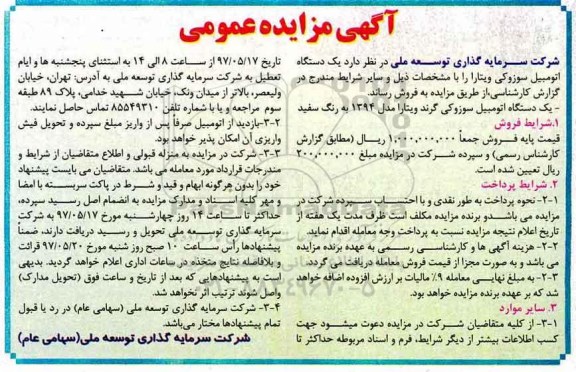 آگهی مزایده عمومی
شرکت سرمایه گذاری توسعه ملی در نظر دارد یک دستگاه
اتومبیل سوزوکی ویتارا را با مشخصات ذیل و سایر شرایط مندرج در
گزارش کارشناسی،از طریق مزایده به فروش رساند.
- یک دستگاه اتومبیل سوزوکی گرند ویتارا مدل ۱۳۹۴ به رنگ سفید
۱.شرایط فروش
قیمت پایه فروش جمعاً ۱,۰۰۰,۰۰۰,۰۰۰ ریال (مطابق گزارش
کارشناس رسمی) و سپرده شرکت در مزایده مبلغ ۲۰۰,۰۰۰,۰۰۰
ریال تعیین شده است.
۲. شرایط پرداخت
۲-۱- نحوه پرداخت به طور نقدی و با احتساب سپرده شرکت در
مزایده می باشدو برنده مزایده مکلف است ظرف مدت یک هفته از
تاریخ اعلام نتیجه مزایده نسبت به پرداخت وجه معامله اقدام نماید.
۲-۲- هزینه آگهی ها و کارشناسی رسمی به عهده برنده مزایده
می باشد و به صورت مجزا از قیمت فروش معامله دریافت می گردد.
۲-۳- به مبلغ نهایی معامله ۹٪ مالیات بر ارزش افزوده اضافه خواهد
شد که بر عهده برنده مزایده خواهد بود.
۳. سایر موارد
۳-۱- از کلیه متقاضیان شرکت در مزایده دعوت میشود جهت
کسب اطلاعات بیشتر از دیگر شرایط، فرم و اسناد مربوطه حداکثر تا
تاریخ ۹۷/۰۵/۱۷ از ساعت ۸ الی ۱۴ به استثنای پنجشنبه ها و ایام
تعطیل به شرکت سرمایه گذاری توسعه ملی به آدرس: تهران، خیابان
ولیعصر، بالاتر از میدان ونک، خیابان شهید خدامی، پلاک ۸۹ طبقه
سوم مراجعه و یا با شماره تلفن ۸۵۵۴۹۳۱۰ تماس حاصل نمایند.
۳-۲-بازدید از اتومبیل صرفاً پس از واریز مبلغ سپرده و تحویل فیش
واریزی آن امکان پذیر خواهد بود.
۳-۳- شرکت در مزایده به منزله قبولی و اطلاع متقاضیان از شرایط و
مندرجات قرارداد مورد معامله می باشد. متقاضیان می بایست پیشنهاد
خود را بدون هرگونه ابهام و قید و شرط در پاکت سربسته با امضا
و مهر کلیه اسناد و مدارک مزایده به انضمام اصل رسید سپرده،
حداکثر تا ساعت ۱۴ روز چهارشنبه مورخ ۹۷/۰۵/۱۷ به شرکت
سرمایه گذاری توسعه ملی تحویل و رسید دریافت دارند، ضمناً
پیشنهادها رأس ساعت ۱۰ صبح روز شنبه مورخ ۹۷/۰۵/۲۰ قرائت
و بلافاصله نتایج متخذه در ساعات اداری اعلام خواهد گردید. بدیهی
است به پیشنهادهایی که بعد از تاریخ و ساعت فوق (تحویل مدارک)
واصل شوند ترتیب اثر نخواهد شد.
۳-۴- شرکت سرمایه گذاری توسعه ملی (سهامی عام) در رد یا قبول
تمام پیشنهادها مختار می‌باشد.
شرکت سرمایه گذاری توسعه ملی(سهامی عام)